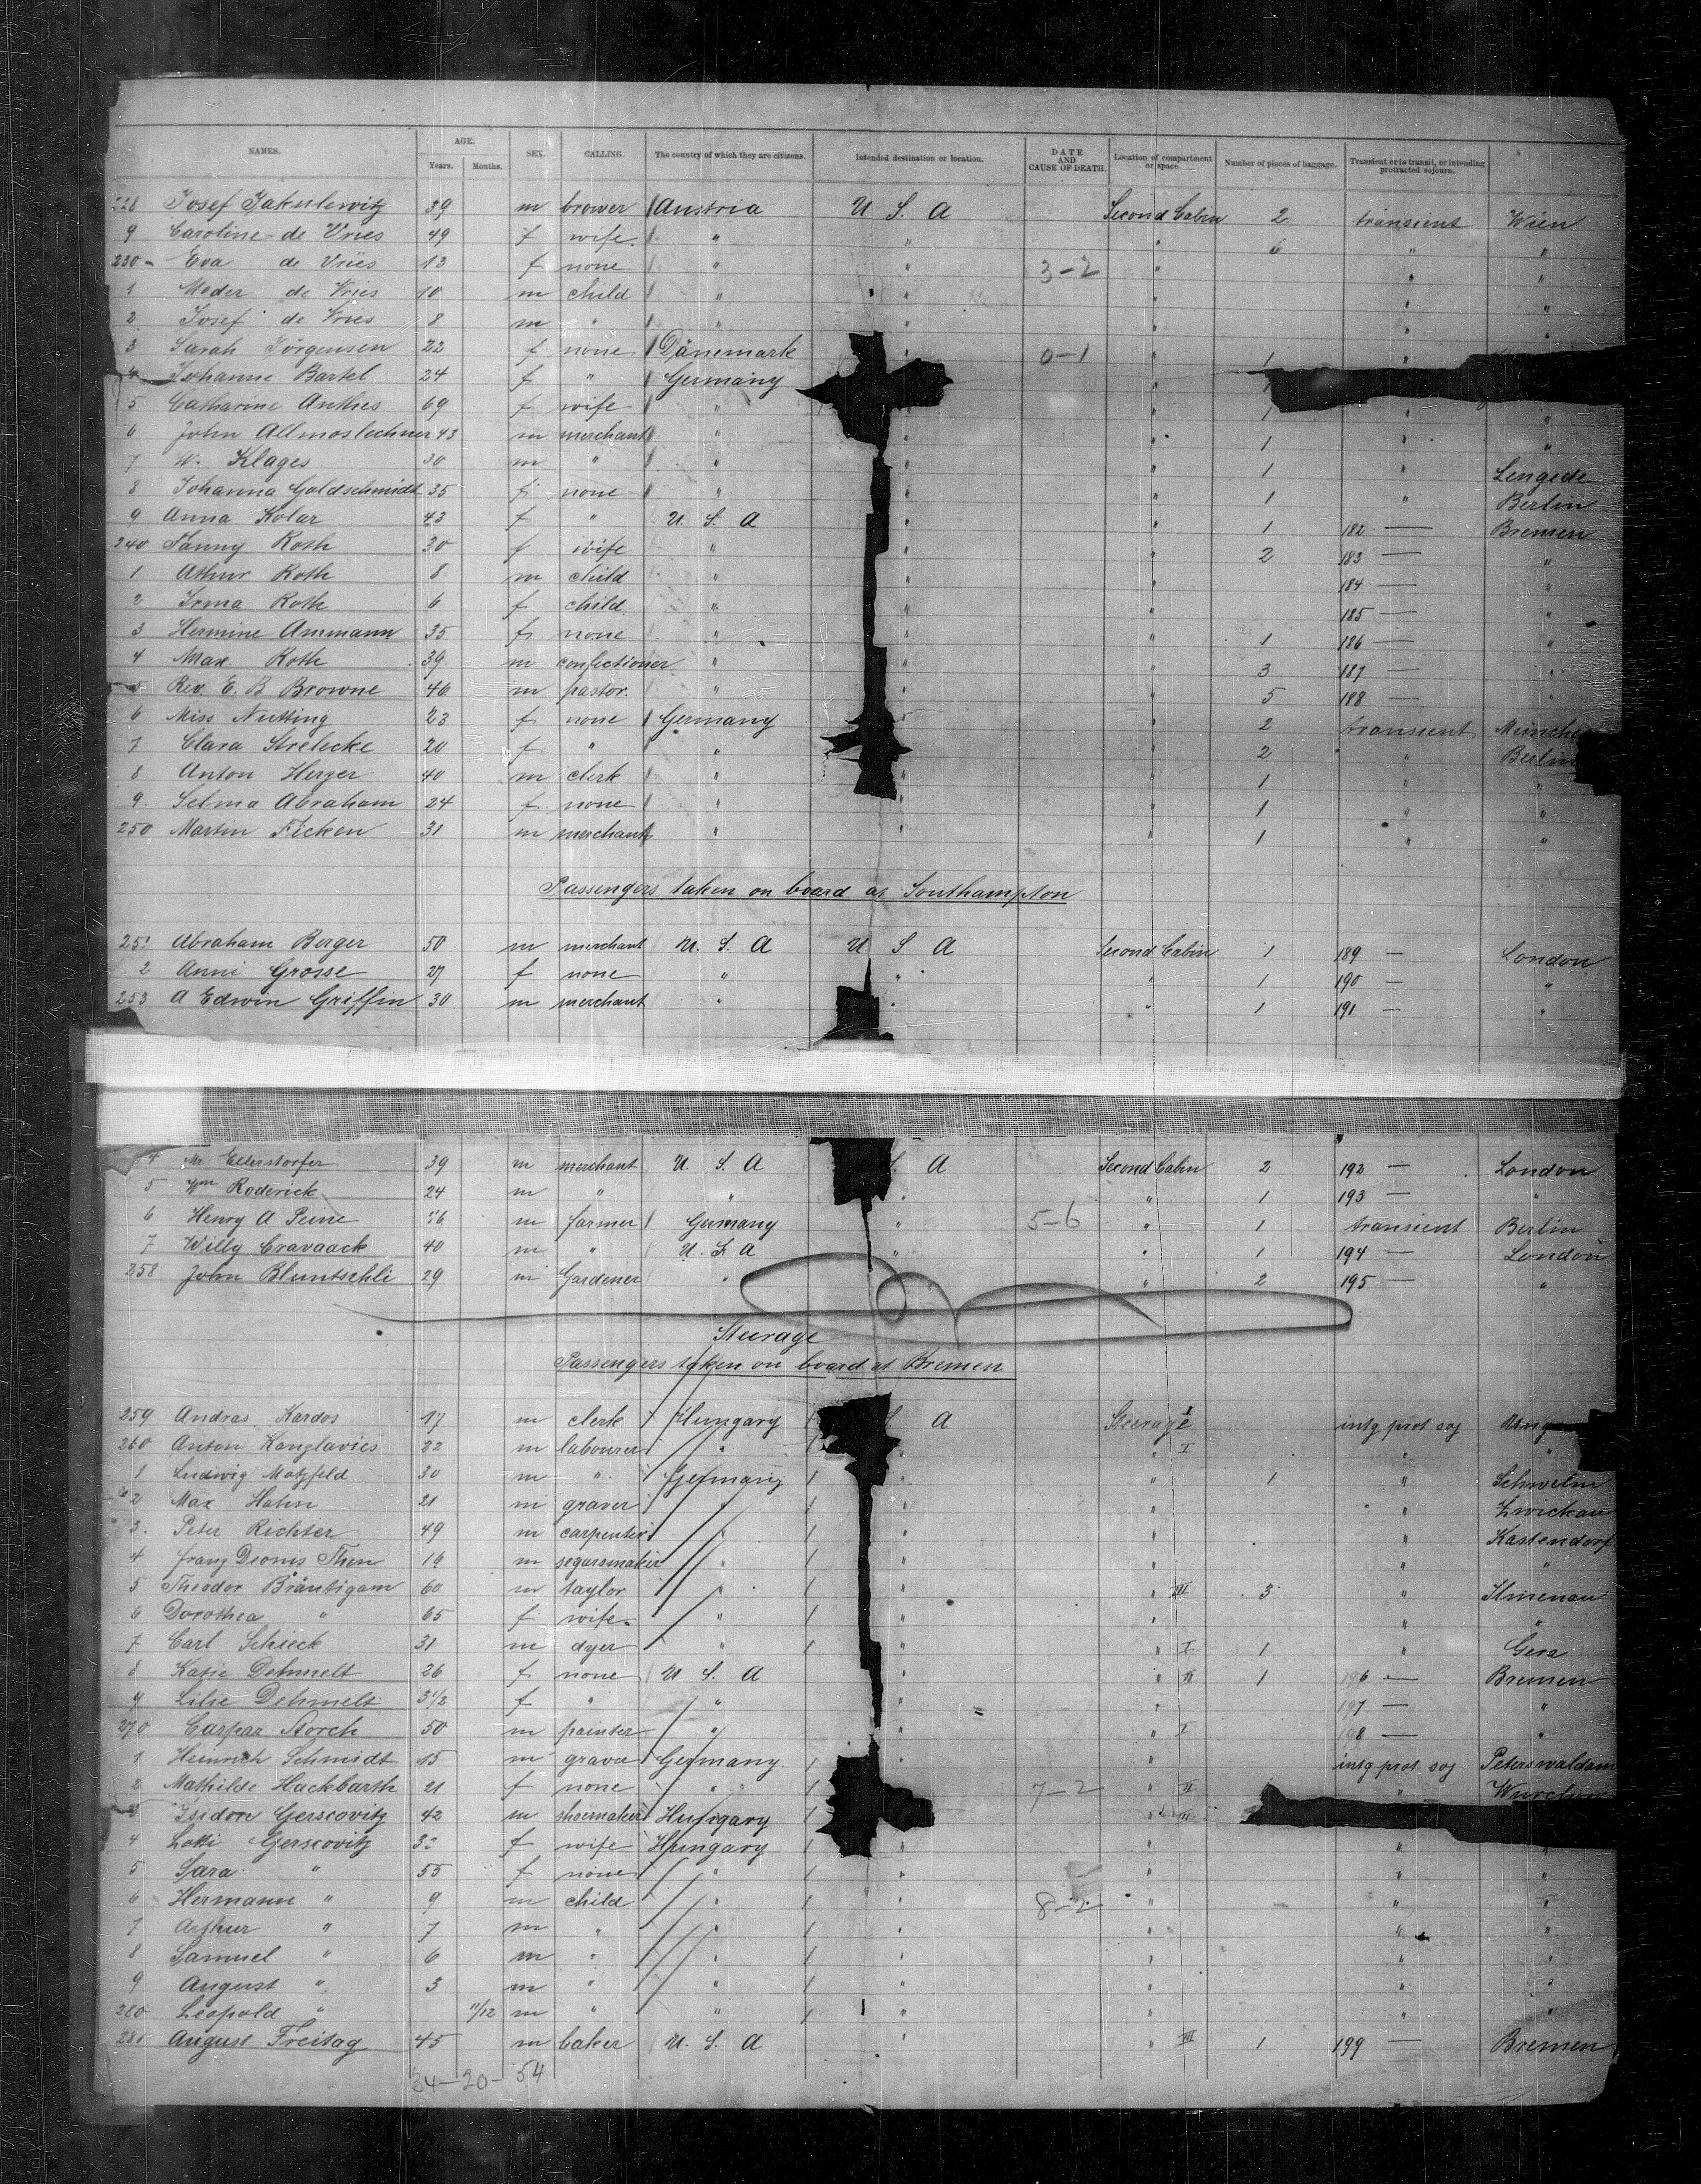 NAMES. AGE. Years. Months. SEX. CALLING. The country of which they are citizens. Intended destination or location. DATE AND CAUSE OF DEATH. Location of compartment or space. Number of pieces of baggage. Transient or in transit, or intending protracted sojourn.
228 Josef Jakulewitz 39 m brower Austria U S. A Second Cabin 2 transient Wien
9 Caroline de Vries 49 f wife " " " 6 " "
230 Eva de Vries 13 f none " " 3-2 " " "
1 Meder de Vries 10 m child " " " " "
2 Josef de Vries 8 m " " " " "
3 Sarah Jörgensen 22 f none Dänemark " 0-1 " 1 "
Johanne Bartel 24 f " Germany "
5 Catharine Anthes 69 f wife " " 1 " "
6 John Allmoslechner 43 m merchant " " " 1 " "
7 W. Klages 30 m " " " " 1 " Lengede
8 Johanna Goldschmidt 35 f none " " " 1 " Berlin
9 Anna Kolar 43 f " U. S. A " " 1 182 — Bremen
240 Fanny Roth 30 f wife " " " 2 183 — "
1 Athur Roth 8 m child " " " 184 — "
2 Irma Roth 6 f child " " " 185 — "
3 Hermine Ammann 35 f none " " " 1 186 — "
4 Max Roth 39 m confectioner " " " 3 187 — "
5 Rev. E. B Browne 46 m pastor. " " " 5 188 — "
6 Miss Nutting 23 f none Germany " 2 transient
7 Clara Strelecke 20 f " " " 2 " Berlin
8 Anton Herzer 40 m clerk " " " 1 " "
9. Selma Abraham 24 f none " " 1 " "
250 Martin Ficken 31 m merchant " " " 1 " "
Passengers taken on board at Southampton
251 Abraham Berger 50 m merchant U. S. A U S A Second Cabin 1 189 — London
2 Anni Grosse 27 f none " " " 1 190 — "
253 A Edwin Griffin 30 m merchant " " " 1 191 — "
4 M. Ellerstorfer 39 m merchant U. S. A S. A Second Cabin 2 192 — London
5 Wm Roderick 24 m " " " " 1 193 — "
6 Henry A Peine m farmer Germany " 5-6 " 1 transient Berlin
7 Willy Cravaack 40 m " U. S. A " " 1 194 — London
258 John Bluntschli 29 m Gardener " " 2 195 — "
Steerage
Passengers taken on board at Bremen
259 Andras Kardos 17 m clerk Hungary S. A Steerage I intg prot soj
260 Anton Kanglavics 22 m labourer " " " I " "
1 Ludwig Motzfeld 30 m " Germany " " 1 " Schwelm
2 Max Hahn 21 m graver " " " " Zwickau
3. Peter Richter 49 m carpenter " " " " Kastendorf
4 Franz Dionis Then m segarsmaker " " " " "
5 Theodor Bräutigam 60 m taylor " " " III 3 " Ilmenau
6 Dorothea " 65 f wife " " " " "
7 Carl Schieck 31 m dyer " " " I 1 " Gera
8 Katie Dehmelt 26 f none U S. A " " II 1 196 — Bremen
9 Lilie Dehmelt 3 1/2 f " " " " 197 — "
270 Caspar Storch 50 m painter " " " I 198 — "
1 Heinrich Schmidt 15 m graver Germany " " intg prot soj Peterswaldau
2 Mathilde Hackbarth 21 f none " " 7-2 " II "
3 Isidon Gerscovitz 42 m shoemaker Hungary " III
4 Loki Gerscovitz f wife Hungary " " " "
5 Sara " 55 f none " " " " "
6 Hermann " 9 m child " " 8-2 " " "
7 Arthur " 7 m " " " " " "
8 Samuel " 6 m " " " " " "
9 August " 3 m " " " " " "
280 Leopold " 11/12 m " " " " " "
281 August Freitag 45 m baker U. S. A " " III 1 199 — Bremen
34-20- 54